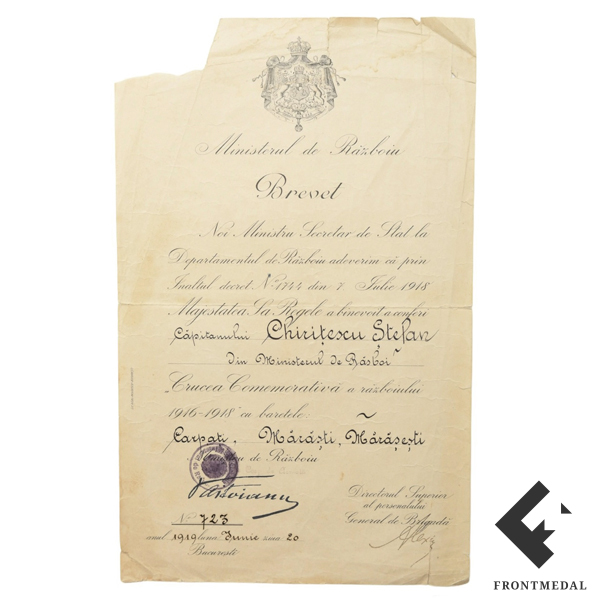 Ministerul de Războiu
Brevet
Noi Ministru Secretar de Stat la
Departamentul de Războiu adeverim că prin
Inaltul decret No. 1744 din 7. Iulie 1918
Majestatea Sa Regele a binevoit a conferi
Căpitanului Chirițescu Ștefan
Din Ministerul de Răsboi
"Crucea Comemorativă a războiului
1916-1918" cu baretele
Carpați, Mărăști, Mărășești
Ministru de Războiu
No 723
anul 1919 luna Iunie ziua 20
București
Directorul Superior
al personalului
General de Brigadă
FRONTMEDAL